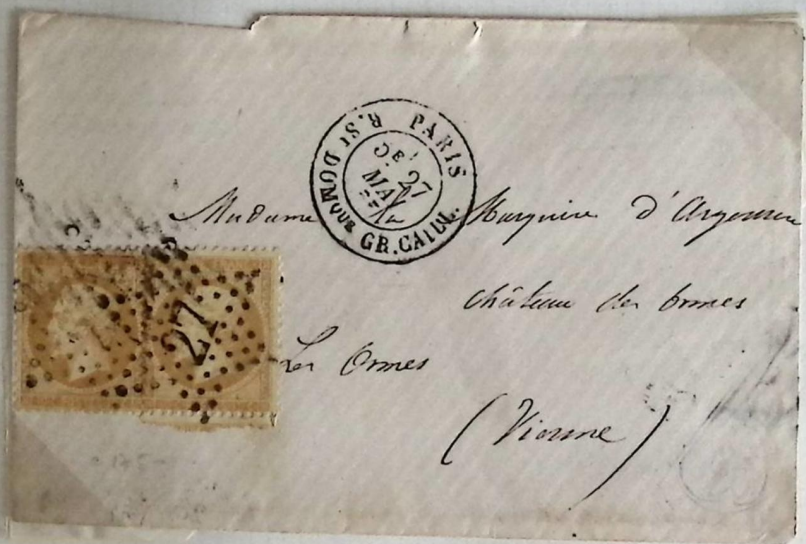 PARIS
R. St DOMque GR. CAILL.
5e
27
MAI
27
Madame la Marquise d'Argenson
château des Ormes
Les Ormes
(Vienne)